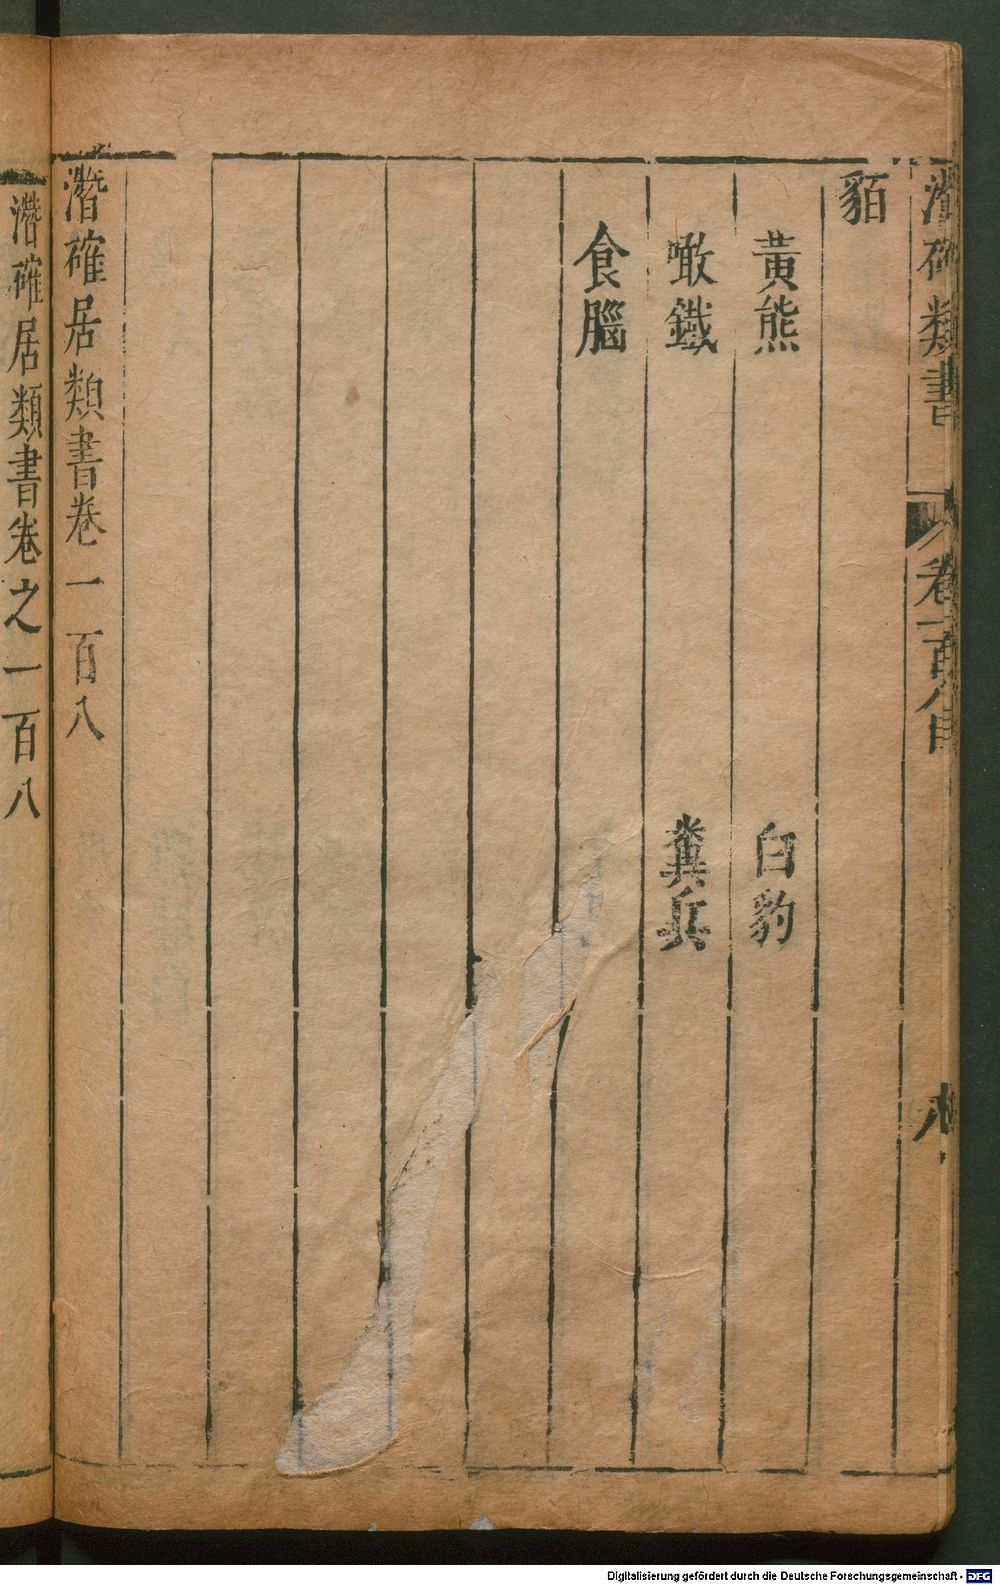 潛確類書
卷一百八目
貊
黃熊
白豹
噉鐵
糞兵
食腦
潛確居類書卷一百八
潛確居類書卷之一百八
Digitalisierung gefördert durch die Deutsche Forschungsgemeinschaft - DFG